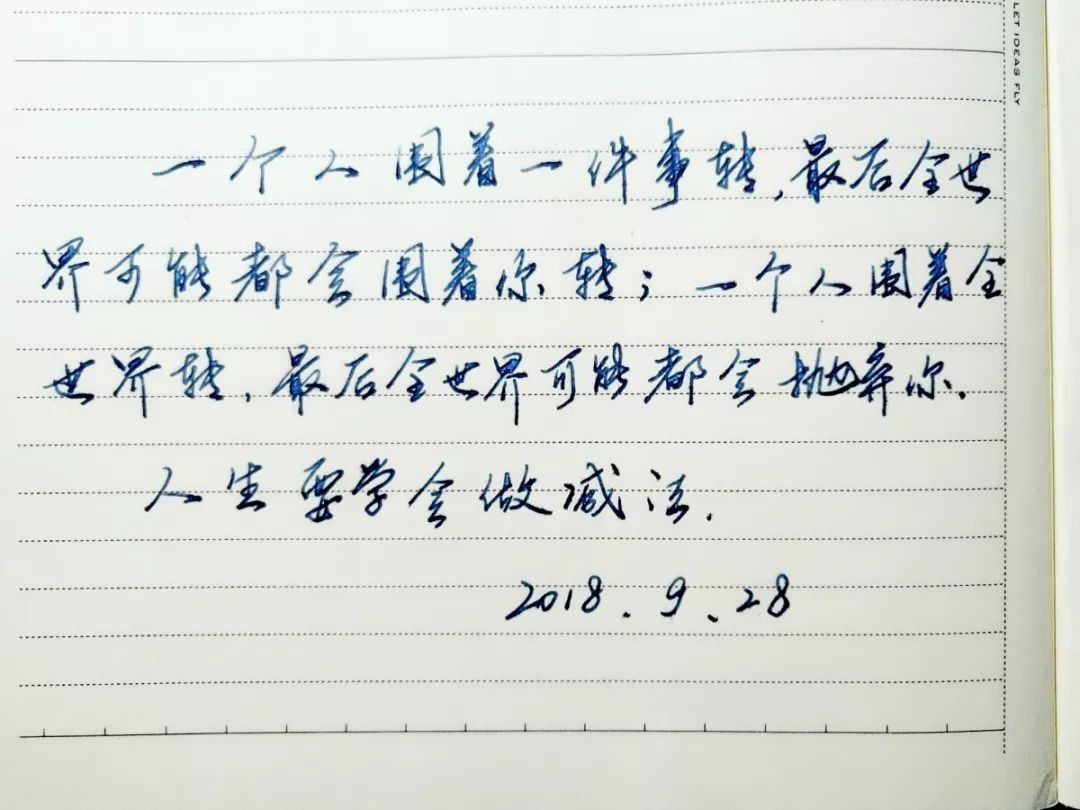 一个人围着一件事转,最后全世
界可能都会围着你转;一个人围着全
世界转,最后全世界可能都会抛弃你.
人生要学会做减法.
2018.9.28
LET IDEAS FLY